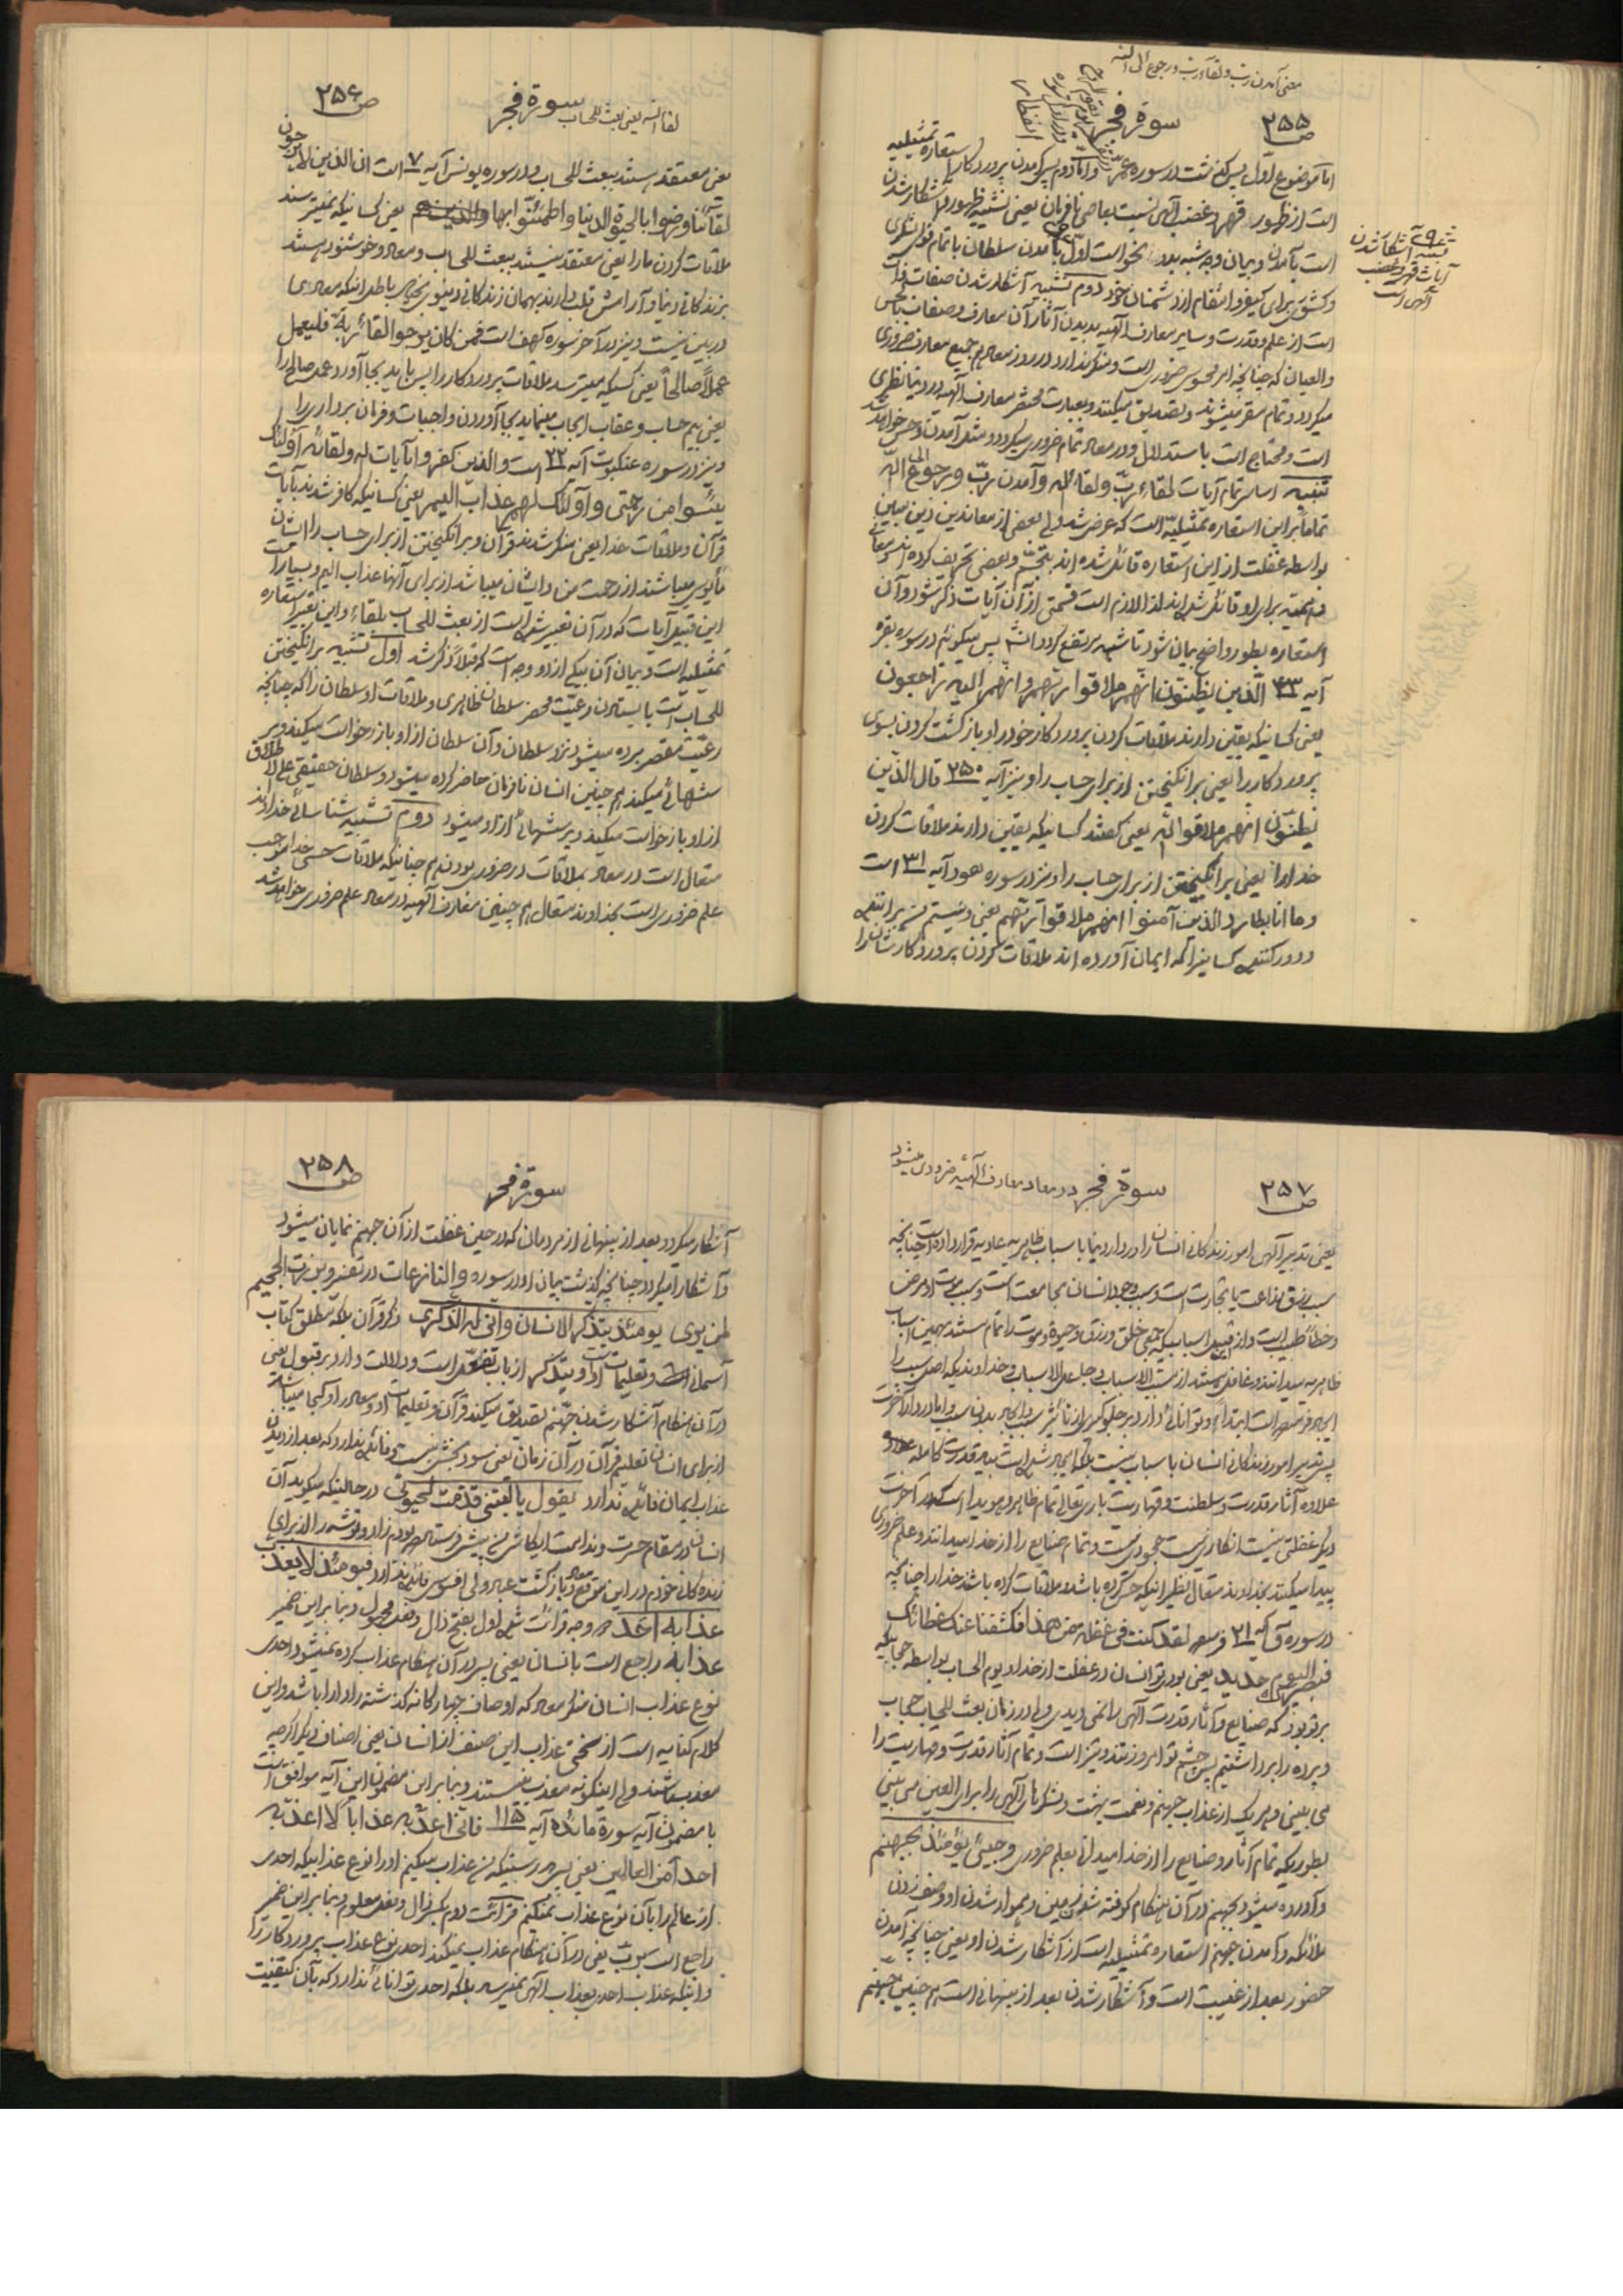 معنی آمدن رب و لقاء رب و رجوع الی الله
ص ۲۵۵
سورة فجر
اما موضوع اول پس گذشت در سوره و اما دوم پس آمدن پروردگار استعاره تمثیلیه
است از ظهور قهر و غضب الهی نسبت بعاصی نافرمان یعنی تشبیه ظهور و آشکار شدن
است بآمدن و بیان وجه شبه بدو نحو است اول بآمدن سلطان با تمام قوای لشکری
و کشوری برای کیفر و انتقام از دشمنان خود دوم تشبیه آشکار شدن صفات ذات
است از علم و قدرت و سایر معارف الهیه بدیدن آثار آن معارف و صفات بالحس
والعیان که چنانچه امر محسوس ضروری است و منکر ندارد در روز معاد هم جمیع معارف ضروری
میگردد و تمام مقر میشوند و تصدیق میکنند و بعبارت مختصر معارف الهیه در دنیا نظری
است و محتاج است باستدلال و در معاد تمام ضروری میگردد و مثل آمدن و حس خواهد شد
تنبیه اساس تمام آیات لقاء رب و لقاء الله و آمدن رب و رجوع الی الله
تماما بر این استعاره تمثیلیه است که عرض شد ولی بعضی از معاندین دین مبین
بواسطه غفلت از این استعاره قائل شده اند بتجسم و بعضی تحریف کرده اند و معانی
برای او قائل شده اند لذا لازم است قسمتی از آن آیات ذکر شود و آن
استعاره بطور واضح بیان شود تا شبهه مرتفع گردد پس میگوئیم در سوره بقره
آیه ۴۳ الذین یظنون انهم ملاقوا ربهم و انهم الیه راجعون
یعنی کسانیکه یقین دارند ملاقات کردن پروردگار خود را و بازگشت کردن بسوی
پروردگار را یعنی برانگیختن از برای حساب را و نیز آیه ۲۵۰ قال الذین
یظنون انهم ملاقوا الله یعنی گفتند کسانیکه یقین دارند ملاقات کردن
خدا را یعنی برانگیختن از برای حساب را و نیز در سوره هود آیه ۳۱ است
و ما انا بطارد الذین آمنوا انهم ملاقوا ربهم یعنی و نیستم من
و دور کننده کسانیرا که ایمان آورده اند ملاقات کردن پروردگارشان را
آیات قهر و غضب
الهی است
ص ۲۵۶
سورة فجر
لقاء الله یعنی بعث للحساب
یعنی معتقد هستند ببعث للحساب و در سوره یونس آیه ۷ است ان الذین لایرجون
لقائنا و رضوا بالحیوة الدنیا و اطمئنوا بها یعنی کسانیکه نمیترسند
ملاقات کردن ما را یعنی معتقد نیستند ببعث للحساب و معاد و خوشنود هستند
بزندگانی دنیا و آرامش قلب دارند بهمان زندگانی دنیوی بخیال باطل اینکه معادی
در بین نیست و نیز در آخر سوره کهف است فمن کان یرجوا لقاء ربه فلیعمل
عملا صالحا یعنی کسیکه میترسد ملاقات پروردگار را پس باید بجا آورد عمل صالح را
یعنی بیم حساب و عقاب ایجاب مینماید بجا آوردن واجبات و فرمان برداری را
و نیز در سوره عنکبوت آیه ۲۲ است والذین کفروا بآیات الله و لقائه اولئک
یئسوا من رحمتی و اولئک لهم عذاب الیم یعنی کسانیکه کافر شدند بآیات
قرآن و ملاقات خدا یعنی منکر شدند قرآن و برانگیختن از برای حساب را ایشان
مأیوس میباشند از رحمت من و ایشان میباشد از برای آنها عذاب الیم و بسیار است
این قبیل آیات که در آن تعبیر شده است از بعث للحساب بلقاء و این تعبیر استعاره
تمثیلیه است و بیان آن بیکی از دو وجه است که قبلا ذکر شد اول تشبیه برانگیختن
للحساب است بایستادن رعیت محضر سلطان ظاهری و ملاقات او سلطان را که چنانچه
رعیت مقصر برده میشود نزد سلطان و آن سلطان از او بازخواست میکند و بر
میکند هم چنین انسان نافرمان حاضر کرده میشود و سلطان حقیقی علی الاطلاق
از او بازخواست میکند دوم تشبیه شناسائی خداوند
متعال است در معاد بملاقات در ضروری بودن هم چنانیکه ملاقات حسی خدا موجب
علم ضروری است بخداوند متعال هم چنین معارف الهیه در معاد علم ضروری خواهد شد
ص ۲۵۷
سورة فجر
در معاد معارف الهیه ضروری میشود
یعنی تدبیر الهی امور زندگانی انسان را در دار دنیا باسباب ظاهریه عادیه قرار داده است چنانچه
سبب رزق زراعت یا تجارت است و سبب وجود انسان مجامعت است و سبب موت او مرض
و خطأ طبیب است و از قبیل اسبابیکه جمعی خلق و رزق و حیوة و موت را تمام مستند بهمین اسباب
ظاهریه میدانند و غافل هستند از مسبب الاسباب و جاعل الاسباب و خداوندیکه اصل سبب را
پس تدبیر امور زندگانی انسان باسباب نیست بلکه ایجاد شده است بید قدرت کامله
علاوه آثار قدرت و سلطنت و قهاریت باری تعالی تمام ظاهر و هویدا است که در آخرت
دیگر غفلتی نیست انکاری نیست جحودی نیست و تمام صنایع را از خدا میدانند و علم ضروری
پیدا میکنند بخداوند متعال نظیر اینکه حس کرده باشد و ملاقات کرده باشند خدا را چنانچه
در سوره ق آیه ۲۱ لقد کنت فی غفلة من هذا فکشفنا عنک غطائک
فبصرک الیوم حدید یعنی بودی تو انسان در غفلت از خدا و یوم الحساب بواسطه حجابیکه
بر تو بود که صنایع و آثار قدرت الهی را نمی دیدی ولی در زمان بعث للحساب حجاب
و پرده را برداشتیم پس چشم تو امروز تند و تیز است و تمام آثار قدرت و قهاریت را
می بینی و هر یک از عذاب جهنم و نعمت بهشت و لشکرهای الهی را برای العین می بینی
بطوریکه تمام آثار و صنایع را از خدا میدانی بعلم ضروری و جیئ یومئذ بجهنم
و آورده میشود جهنم در آن هنگام کوفته شدن زمین و هموار شدن او وصف زدن
ملائکه و آمدن جهنم استعاره تمثیلیه است از آشکار شدن او یعنی چنانچه آمدن
حضور بعد از غیبت است و آشکار شدن بعد از پنهانی است هم چنین جهنم
ص ۲۵۸
سورة فجر
آشکار میگردد بعد از پنهانی از مردمان که در حین غفلت از آن جهنم نمایان میشود
و آشکارا میگردد چنانچه گذشت بیان او در سوره والنازعات در تفسیر و برزت الجحیم
لمن یری یومئذ یتذکر الانسان و انی له الذکری ذکر قرآن بلکه مطلق کتاب
آسمانی است و تعلیمات او و یتذکر از باب تفعل است و دلالت دارد بر قبول یعنی
در آن هنگام آشکار شدن جهنم تصدیق میکند قرآن و تعلیمات او و معاد را و کجا میباشد
از برای انسان تعلیم قرآن در آن زمان یعنی سود بخش نیست و فائده ندارد که بعد از دیدن
عذاب ایمان فائده ندارد یقول یا لیتنی قدمت لحیوتی در حالیکه میگوید آن
انسان در مقام حسرت و ندامت ایکاش من پیش فرستاده بودم زاد و توشه را از برای
زنده گانی خودم در این موقع و بازگشت ولی افسوس فائده ندارد فیومئذ لا یعذب
عذابه احد دو وجه قرائت شده اول بفتح ذال و فعل مجهول و بنا بر این ضمیر
عذابه راجع است بانسان یعنی پس در آن هنگام عذاب کرده نمیشود احدی
نوع عذاب انسان منکر معاد که اوصاف چهارگانه گذشته را دارا باشد و این
کلام کنایه است از سختی عذاب این صنف از انسان یعنی اصناف دیگر اگرچه
معذب باشند ولی اینگونه معذب نیستند و بنا بر این مضمون این آیه موافق است
با مضمون آیه سورة مائده آیه ۱۱۵ فانی اعذبه عذابا لا اعذبه
احدا من العالمین یعنی پس بدرستیکه من عذاب میکنم او را نوع عذابیکه احدی
از عالم را بآن نوع عذاب نمیکنم قرائت دوم بکسر ذال و فعل معلوم و بنا بر این ضمیر
راجع است برب یعنی در آن هنگام عذاب نمیکند احدی نوع عذاب پروردگار را
و اینکه عذاب احدی بعذاب الهی نمیرسد بلکه احدی توانائی ندارد که بآن کیفیت